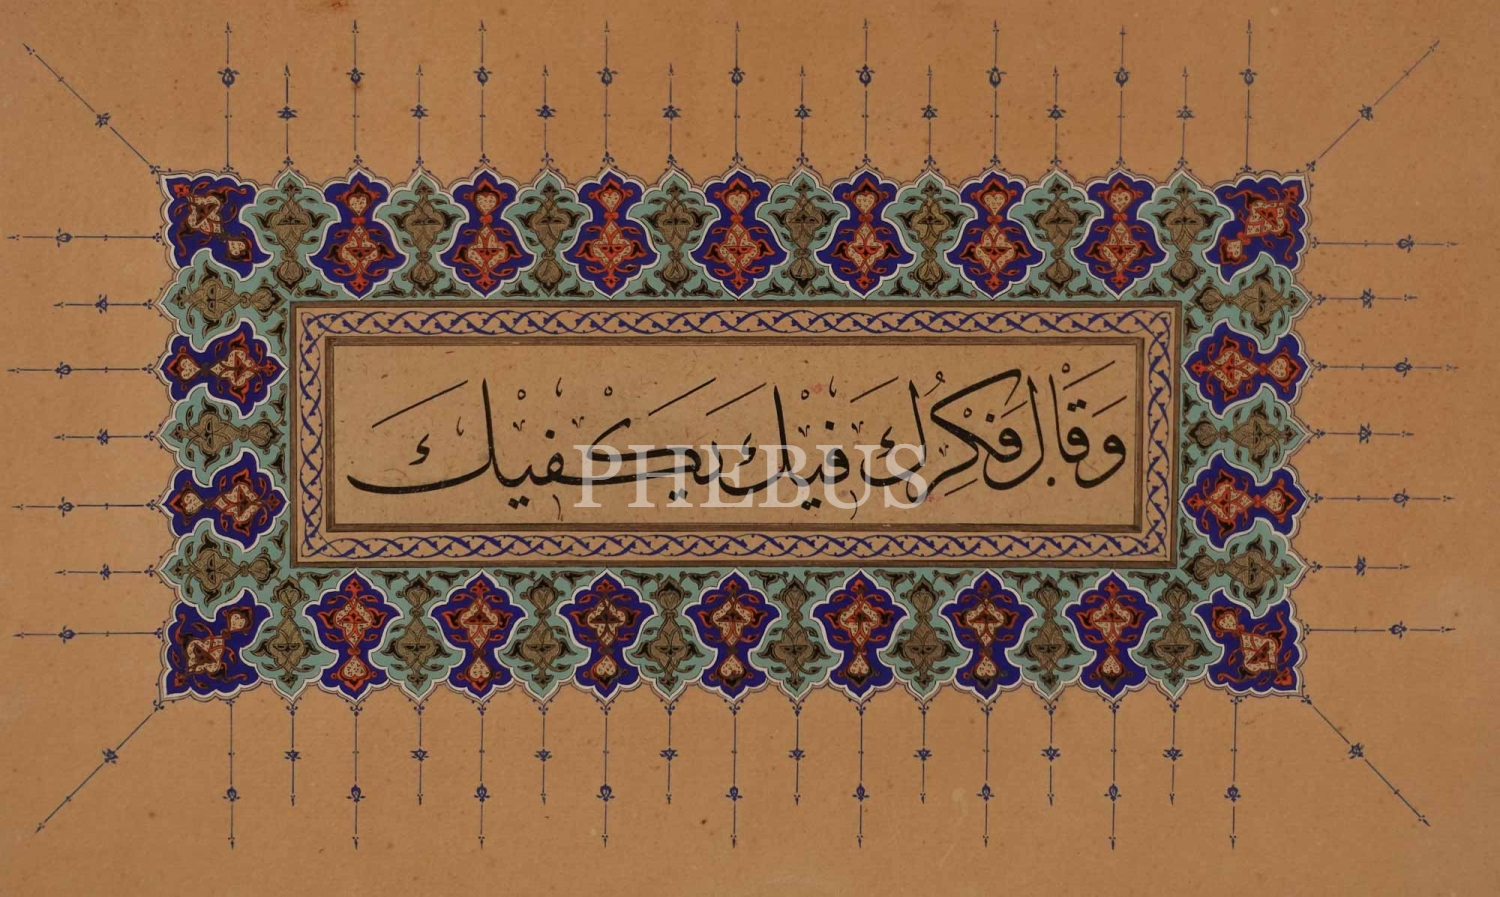 وَقَالَ فَكْرُكَ فِيْكَ يَكْفِيْكَ
PHEBUS